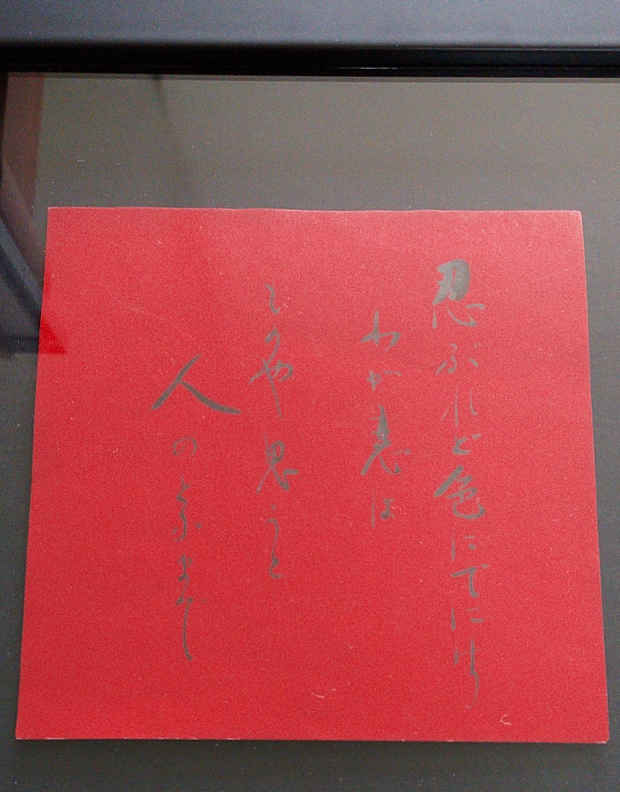 忍ぶれど色にでにけり
わが恋は
ものや思うと
人のとふまで